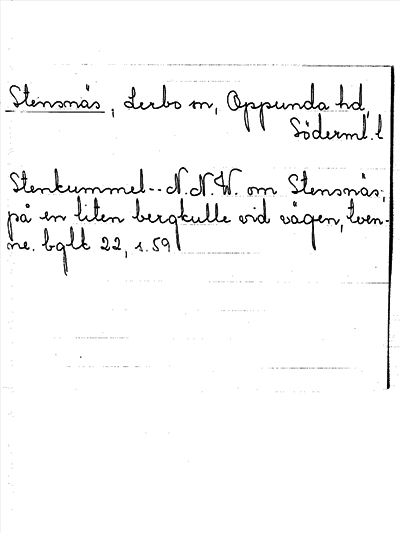 Stensnäs, Lerbo sn, Oppunda hd,
Söderml. l
Stenkummel-- N.N.W. om Stensnäs,
på en liten bergkulle vid vägen, tven-
ne. bglt 22, s. 59